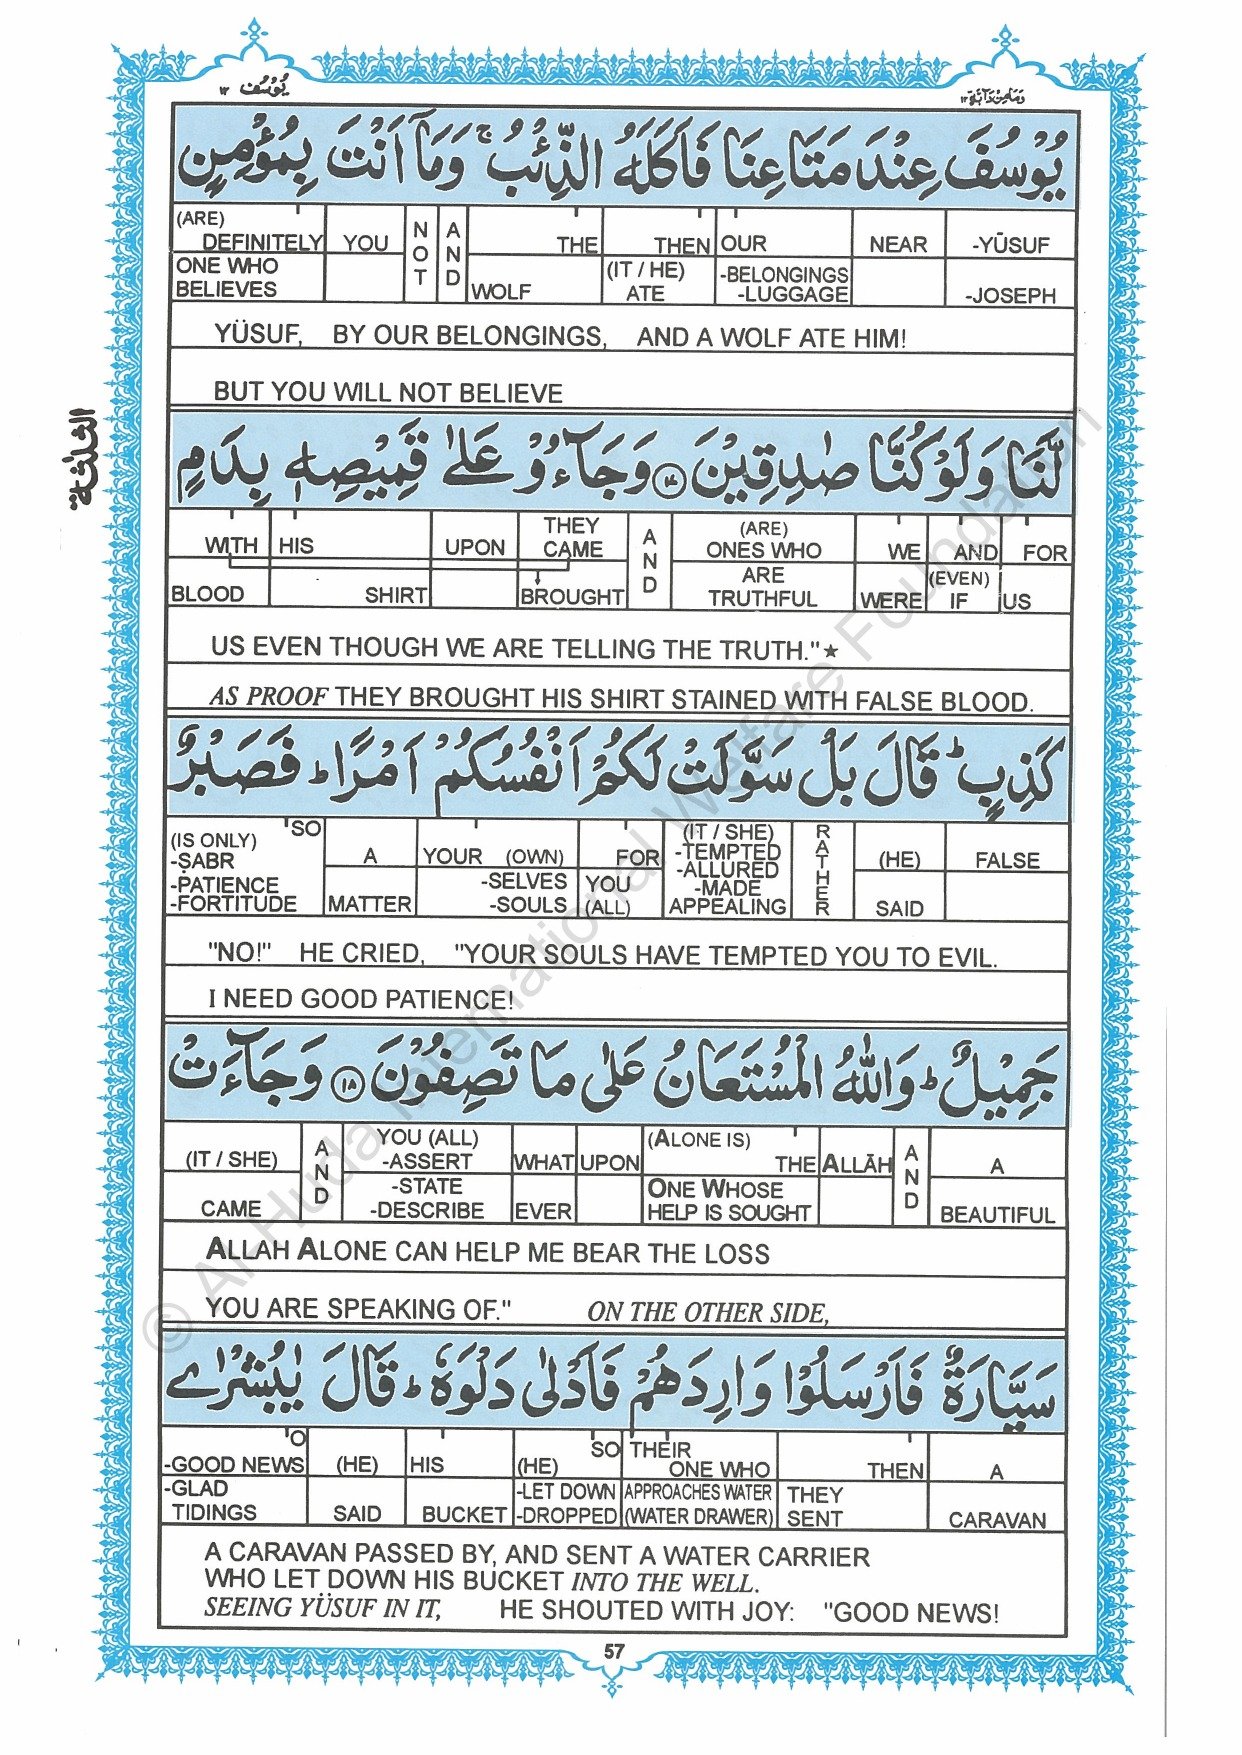 وَمَا مِنْ دَآبَّةٍ ١٢
يُوْسُف ١٢
يُوْسُفَ عِنْدَ مَتَاعِنَا فَاَكَلَهُ الذِّئْبُ ۚ وَمَآ اَنْتَ بِمُؤْمِنٍ
(ARE) DEFINITELY YOU NOT AND THE THEN OUR NEAR -YŪSUF
ONE WHO BELIEVES WOLF (IT / HE) ATE -BELONGINGS -LUGGAGE -JOSEPH
YÜSUF, BY OUR BELONGINGS, AND A WOLF ATE HIM!
BUT YOU WILL NOT BELIEVE
الثلثة
لَّنَا وَلَوْ كُنَّا صٰدِقِيْنَ ۝١٧ وَجَآءُوْ عَلٰى قَمِيْصِهٖ بِدَمٍ
WITH HIS UPON THEY CAME AND (ARE) ONES WHO WE AND FOR
BLOOD SHIRT BROUGHT ARE TRUTHFUL WERE (EVEN) IF US
US EVEN THOUGH WE ARE TELLING THE TRUTH."★
AS PROOF THEY BROUGHT HIS SHIRT STAINED WITH FALSE BLOOD.
كَذِبٍ ؕ قَالَ بَلْ سَوَّلَتْ لَكُمْ اَنْفُسُكُمْ اَمْرًا ؕ فَصَبْرٌ
'SO (IS ONLY) -ṢABR A YOUR (OWN) FOR (IT / SHE) -TEMPTED -ALLURED RATHER (HE) FALSE
-PATIENCE -FORTITUDE MATTER -SELVES -SOULS YOU (ALL) -MADE APPEALING SAID
"NO!" HE CRIED, "YOUR SOULS HAVE TEMPTED YOU TO EVIL.
I NEED GOOD PATIENCE!
جَمِيْلٌ ؕ وَاللّٰهُ الْمُسْتَعَانُ عَلٰى مَا تَصِفُوْنَ ۝١٨ وَجَآءَتْ
(IT / SHE) AND YOU (ALL) -ASSERT WHAT UPON (ALONE IS) THE ALLĀH AND A
CAME -STATE -DESCRIBE EVER ONE WHOSE HELP IS SOUGHT BEAUTIFUL
ALLAH ALONE CAN HELP ME BEAR THE LOSS
YOU ARE SPEAKING OF." ON THE OTHER SIDE,
سَيَّارَةٌ فَاَرْسَلُوْا وَارِدَهُمْ فَاَدْلٰى دَلْوَهٗ ؕ قَالَ يٰبُشْرٰى
'O -GOOD NEWS (HE) HIS SO (HE) THEIR ONE WHO THEN A
-GLAD TIDINGS SAID BUCKET -LET DOWN -DROPPED APPROACHES WATER (WATER DRAWER) THEY SENT CARAVAN
A CARAVAN PASSED BY, AND SENT A WATER CARRIER
WHO LET DOWN HIS BUCKET INTO THE WELL.
SEEING YÜSUF IN IT, HE SHOUTED WITH JOY: "GOOD NEWS!
57
© Al-Huda International Welfare Foundation